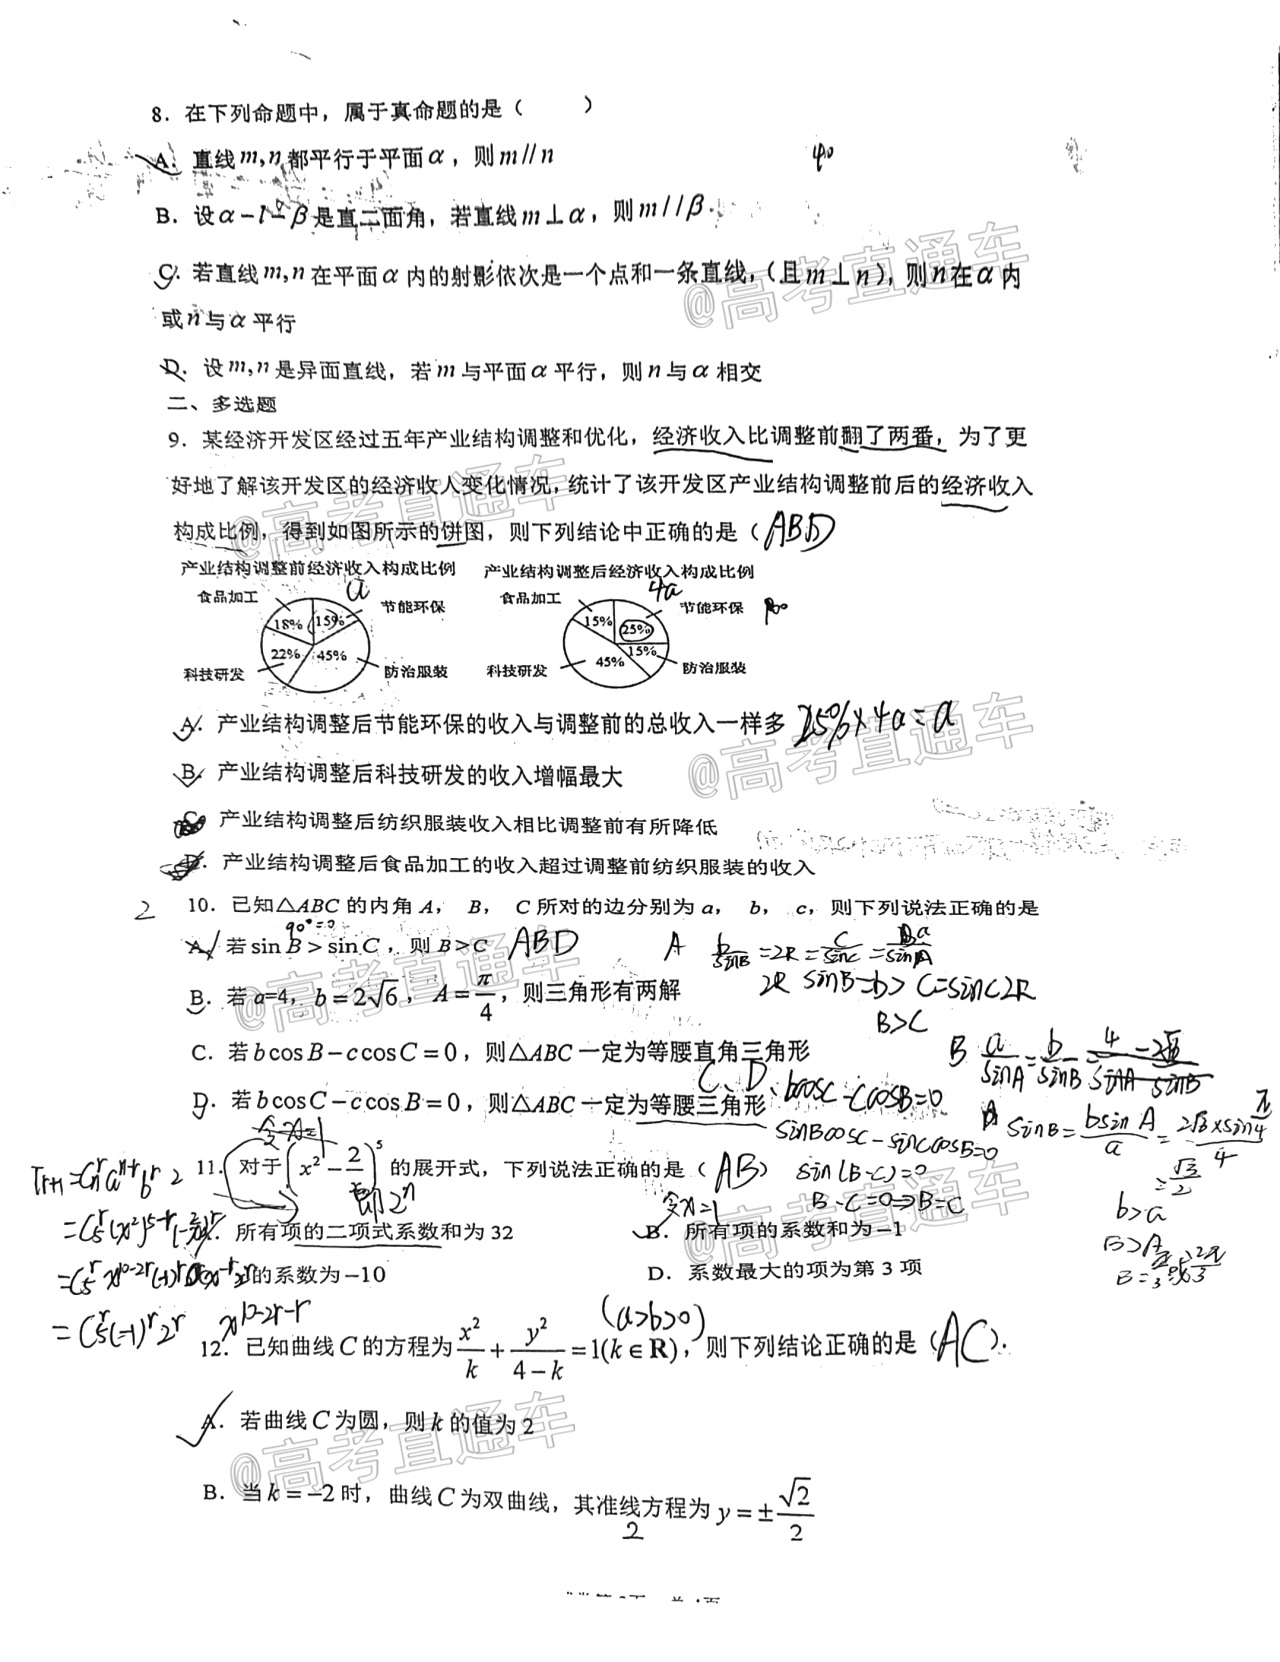 8．在下列命题中，属于真命题的是（　　）
A．直线m,n都平行于平面α，则m//n
40
B．设α-l-β是直二面角，若直线m⊥α，则m//β
C．若直线m,n在平面α内的射影依次是一个点和一条直线，（且m⊥n），则n在α内
或n与α平行
D．设m,n是异面直线，若m与平面α平行，则n与α相交
二、多选题
9．某经济开发区经过五年产业结构调整和优化，经济收入比调整前翻了两番，为了更
好地了解该开发区的经济收人变化情况，统计了该开发区产业结构调整前后的经济收入
构成比例，得到如图所示的饼图，则下列结论中正确的是（ABD
产业结构调整前经济收入构成比例　产业结构调整后经济收入构成比例
食品加工 a 节能环保 食品加工 4a 节能环保
18% 15% 15% 25%
22% 45% 45% 15%
科技研发 防治服装 科技研发 防治服装
A．产业结构调整后节能环保的收入与调整前的总收入一样多 25%×4a=a
B．产业结构调整后科技研发的收入增幅最大
C．产业结构调整后纺织服装收入相比调整前有所降低
D．产业结构调整后食品加工的收入超过调整前纺织服装的收入
2 10．已知△ABC的内角A， B， C所对的边分别为a， b， c，则下列说法正确的是
A．若sin B>sin C，则B>C ABD A b/sinB=2R=c/sinC=a/sinA
2R sinB=b>C=sinC2R
B>C
B．若a=4，b=2√6，A=π/4，则三角形有两解
C．若b cos B-c cos C=0，则△ABC一定为等腰直角三角形
B a/sinA=b/sinB=
C、D、bcosC-CcosB=0
D．若b cos C-c cos B=0，则△ABC一定为等腰三角形
sinBcosC-sinCcosB=0
sin(B-C)=0
B-C=0⇒B=C
sinB=bsinA/a=
=√3/2
b>a
B>A
令x=1
11．对于(x²-2/x)⁵的展开式，下列说法正确的是（AB）
即2ⁿ
令x=1
A．所有项的二项式系数和为32 B．所有项的系数和为-1
的系数为-10 D．系数最大的项为第3项
=C₅ʳ(-1)ʳ2ʳ x¹⁰⁻²ʳ⁻ʳ
(a>b>0)
12．已知曲线C的方程为x²/k+y²/(4-k)=1(k∈R)，则下列结论正确的是（AC）．
A．若曲线C为圆，则k的值为2
B．当k=-2时，曲线C为双曲线，其准线方程为y=±√2/2
2
@高考直通车
@高考直通车
@高考直通车
@高考直通车
@高考直通车
@高考直通车